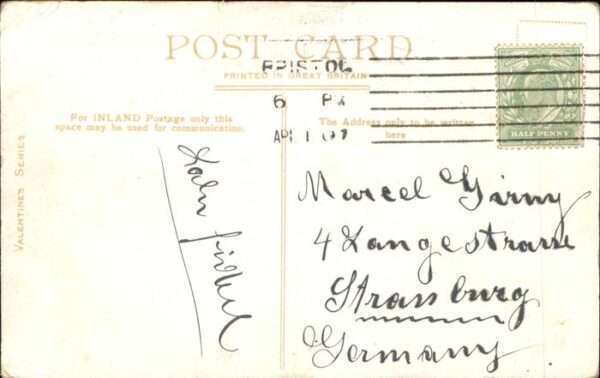 POST CARD
PRINTED IN GREAT BRITAIN
BRISTOL
6 PM
AP 1 07
For INLAND Postage only this
space may be used for communication.
The Address only to be written
here
HALF PENNY
VALENTINES SERIES
Marcel Girny
4 Langestrasse
Strassburg
Germany